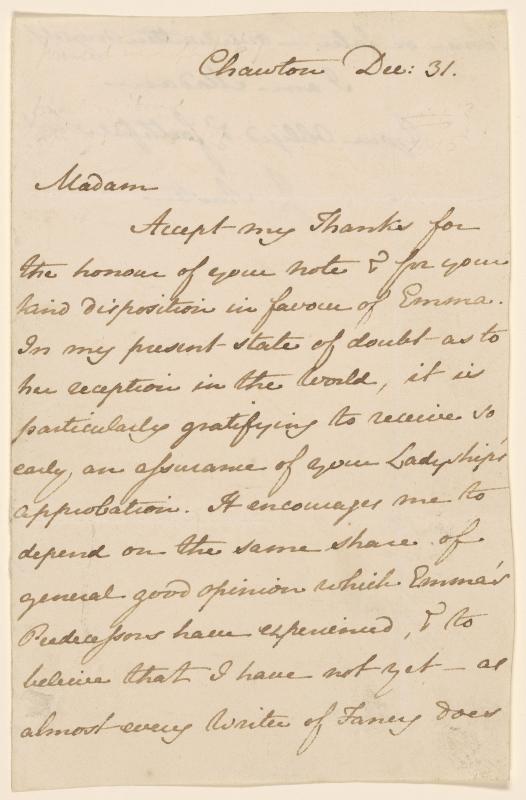 Chawton Dec: 31.
Madam
Accept my Thanks for
the honour of your note & for your
kind disposition in favour of Emma.
In my present state of doubt as to
her reception in the World, it is
particularly gratifying to receive so
early, an assurance of your Ladyship's
approbation. It encourages me to
depend on the same share of
general good opinion which Emma's
Predecessors have experienced, & to
beleive that I have not yet — as
almost every Writer of Fancy does